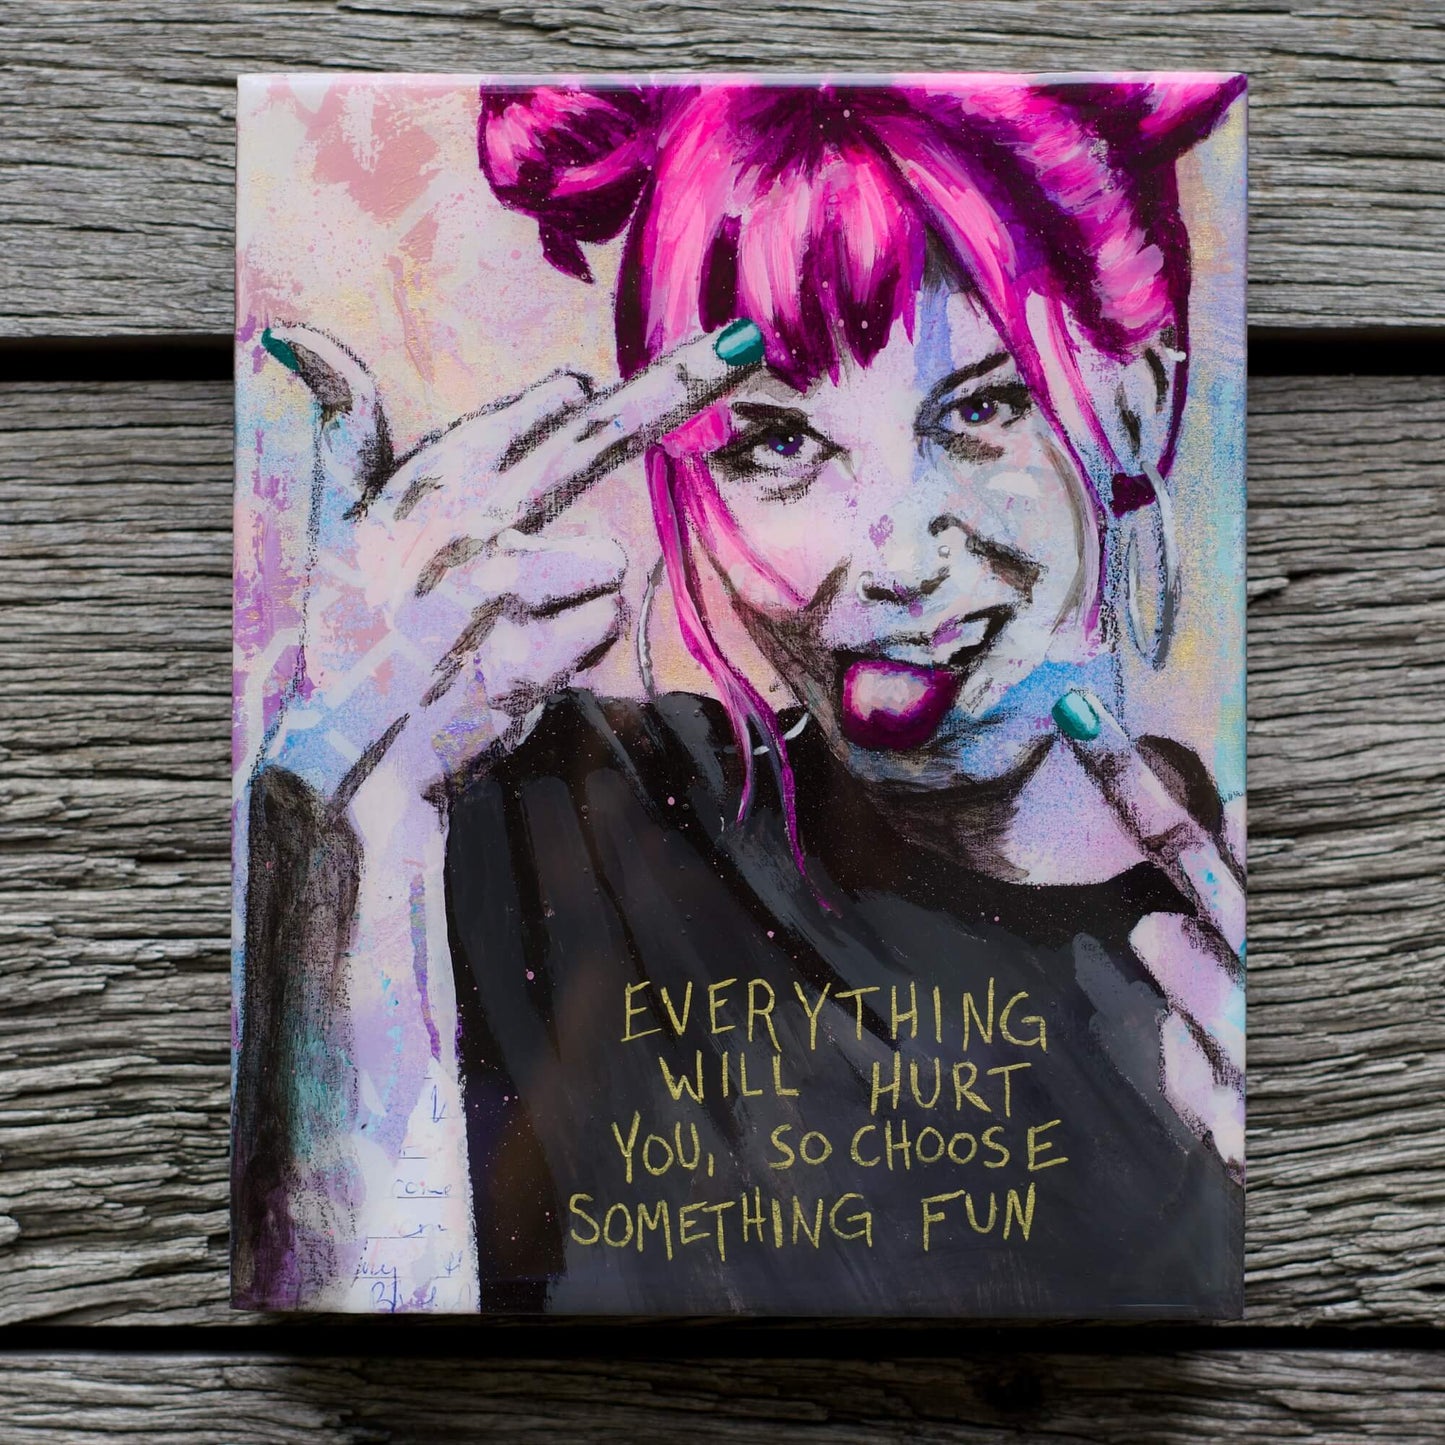 EVERYTHING
WILL HURT
YOU, SO CHOOSE
SOMETHING FUN
come
my